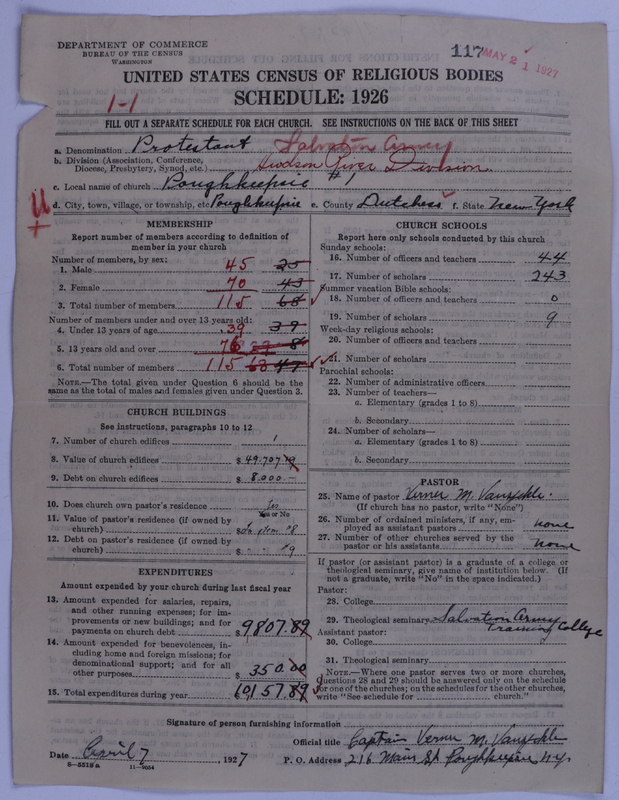 DEPARTMENT OF COMMERCE
BUREAU OF THE CENSUS
WASHINGTON
117 MAY 21 1927
UNITED STATES CENSUS OF RELIGIOUS BODIES
1-1
SCHEDULE: 1926
FILL OUT A SEPARATE SCHEDULE FOR EACH CHURCH. SEE INSTRUCTIONS ON THE BACK OF THIS SHEET
a. Denomination Protestant Salvation Army
b. Division (Association, Conference, Diocese, Presbytery, Synod, etc.) Hudson River Division
c. Local name of church Poughkeepsie #1
d. City, town, village, or township, etc Poughkeepsie e. County Dutchess f. State New York
MEMBERSHIP
Report number of members according to definition of member in your church
Number of members, by sex:
1. Male 45 25
2. Female 70 43
3. Total number of members 115 68
Number of members under and over 13 years old:
4. Under 13 years of age 39 39
5. 13 years old and over 76 8
6. Total number of members 115 68 47
NOTE.—The total given under Question 6 should be the same as the total of males and females given under Question 3.
CHURCH BUILDINGS
See instructions, paragraphs 10 to 12
7. Number of church edifices 1
8. Value of church edifices $49.707.19
9. Debt on church edifices $8.000 —
10. Does church own pastor's residence Yes
Yes or No
11. Value of pastor's residence (if owned by church) $ 8
12. Debt on pastor's residence (if owned by church) $ 9
EXPENDITURES
Amount expended by your church during last fiscal year
13. Amount expended for salaries, repairs, and other running expenses; for improvements or new buildings; and for payments on church debt $9807.89
14. Amount expended for benevolences, including home and foreign missions; for denominational support; and for all other purposes $350.00
15. Total expenditures during year $10,157.89
CHURCH SCHOOLS
Report here only schools conducted by this church
Sunday schools:
16. Number of officers and teachers 44
17. Number of scholars 243
Summer vacation Bible schools:
18. Number of officers and teachers 0
19. Number of scholars 9
Week-day religious schools:
20. Number of officers and teachers
21. Number of scholars
Parochial schools:
22. Number of administrative officers
23. Number of teachers—
a. Elementary (grades 1 to 8)
b. Secondary
24. Number of scholars—
a. Elementary (grades 1 to 8)
b. Secondary
PASTOR
25. Name of pastor Verner M.
(If church has no pastor, write "None")
26. Number of ordained ministers, if any, employed as assistant pastors none
27. Number of other churches served by the pastor or his assistants none
If pastor (or assistant pastor) is a graduate of a college or theological seminary, give name of institution below. (If not a graduate, write "No" in the space indicated.)
Pastor:
28. College
29. Theological seminary Salvation Army Training College
Assistant pastor:
30. College
31. Theological seminary
NOTE.—Where one pastor serves two or more churches, Questions 28 and 29 should be answered only on the schedule for one of the churches; on the schedules for the other churches, write "See schedule for church."
Signature of person furnishing information
Official title Captain Verner M.
Date April 7 1927 P. O. Address 216 Main St Poughkeepsie N.Y.
8—5319 a 11—9054